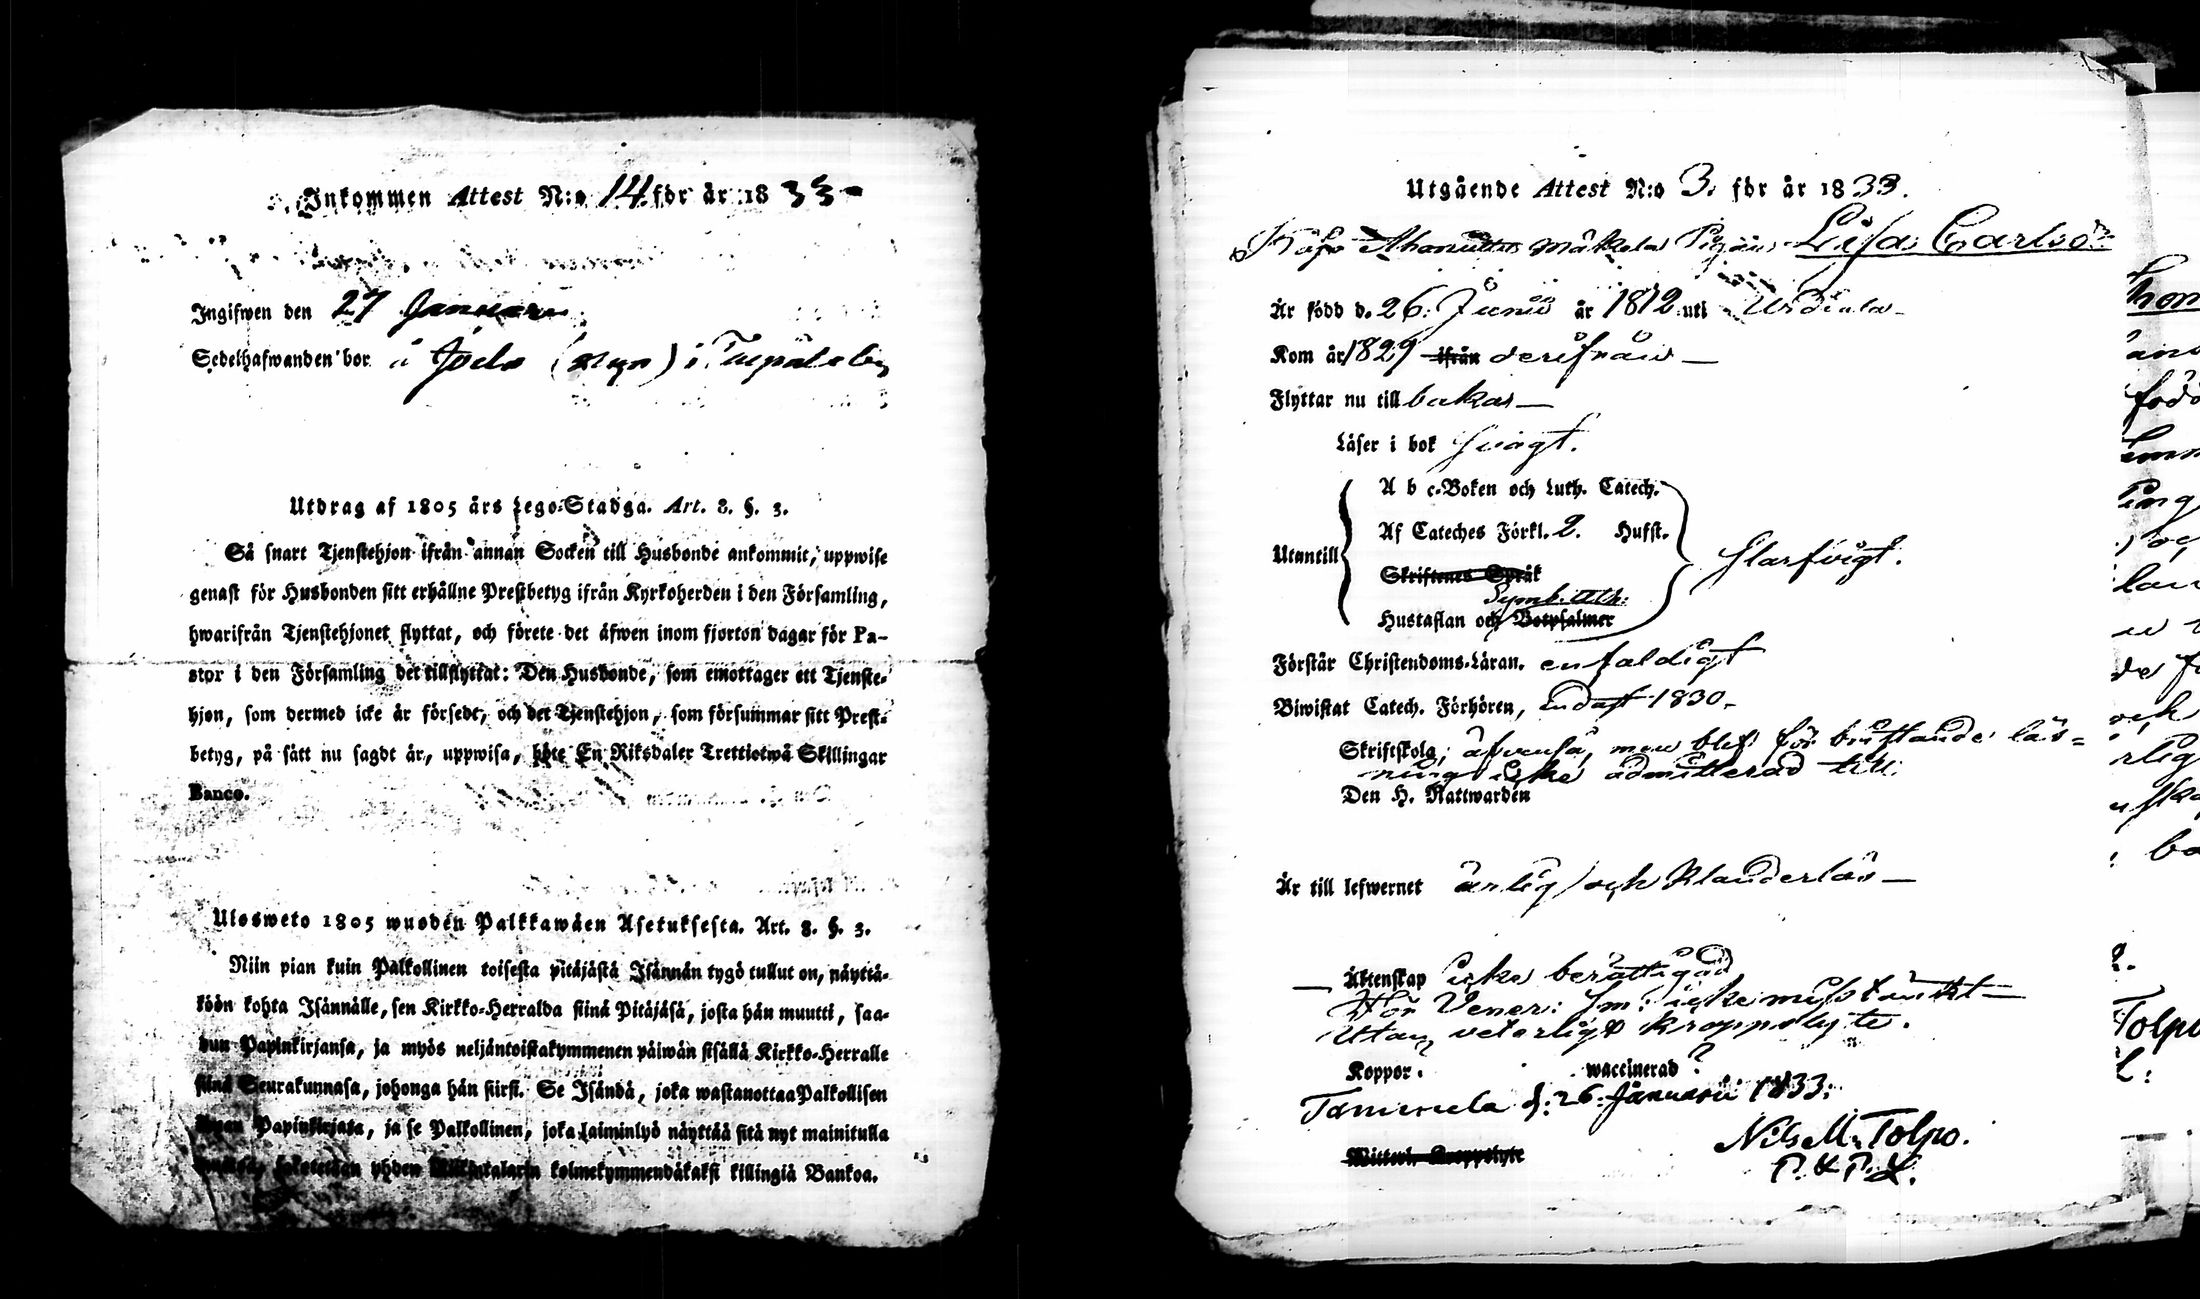 Inkommen Attest N:o 14 för år 1833
Ingifwen den 27 Januari
Sedelhafwanden bor å Joela (Nyn) i
Utdrag af 1805 års Lego-Stadga. Art. 8. §. 3.
Så snart Tjenstehjon ifrån annan Socken till Husbonde ankommit, uppwise
genast för Husbonden sitt erhållne Prestbetyg ifrån Kyrkoherden i den Församling,
hwarifrån Tjenstehjonet flyttat, och förete det äfwen inom fjorton dagar för Pa-
stor i den Församling det tillflyttat: Den Husbonde, som emottager ett Tjenste-
hjon, som dermed icke är försedt, och det Tjenstehjon, som försummar sitt Prest-
betyg, på sätt nu sagdt är, uppwisa, böte En Riksdaler Trettiotwå Skillingar
Banco.
Ulosweto 1805 wuoden Palkkawäen Asetuksesta. Art. 8. §. 3.
Niin pian kuin Palkollinen toisesta pitäjästä Isännän tygö tullut on, näyttä-
köön kohta Isännälle, sen Kirkko-Herralda siinä Pitäjäsä, josta hän muutti, saa-
dun Papinkirjansa, ja myös neljäntoistakymmenen päiwän sisällä Kirkko-Herralle
siinä Seurakunnasa, johonga hän siirsi. Se Isändä, joka wastanottaa Palkollisen
ilman Papinkirjata, ja se Palkollinen, joka laiminlyö näyttää sitä nyt mainitulla
yhden kolmekymmendäkaksi killingiä Bankoa.
Utgående Attest N:o 3. för år 1833.
Mäkelä Pigan Lisa Carlsdr
Är född d. 26. Junii år 1812 uti Urdiala
Kom år 1829 ifrån derifrån
Flyttar nu till bakas
Läser i bok svagt.
A b c-Boken och Luth. Catech.
Af Cateches Förkl. 2. Hufst.
Utantill
Skriftenes Språk
Slarfvigt.
Symb. Ath:
Hustaflan och Botpsalmer
Förstår Christendoms-Läran. enfaldigt
Biwistat Catech. Förhören, endast 1830
Skriftskola, äfvenså, men blef för bristande läs-
ning icke admitterad till
Den H. Nattwarden
Är till lefwernet ärlig och klanderlös
Äktenskap icke berättigad
För Vener: Sm: icke misstänkt
Utan veterligt kroppslyte.
Koppor. waccinerad?
Tammela d. 26. Januarii 1833.
Nils M. Tolpo.
P. & P. L.
Witterl. Kroppslyte